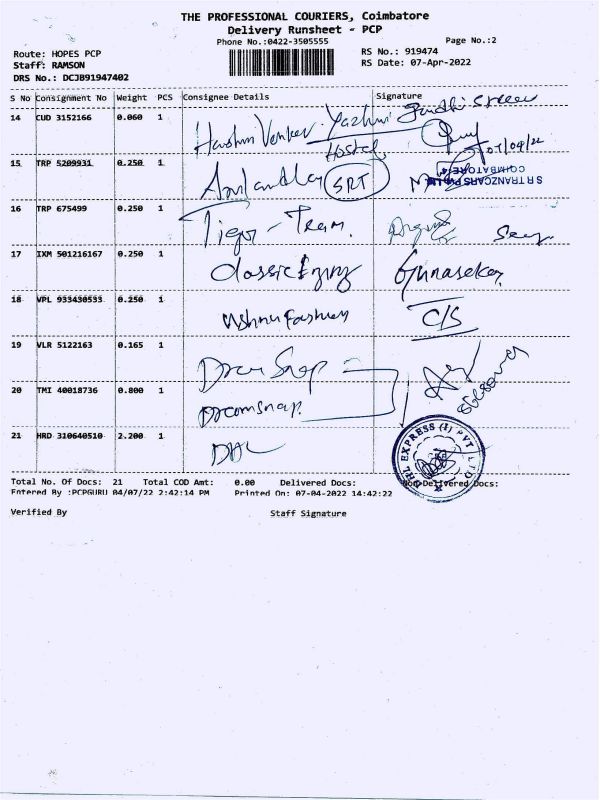 THE PROFESSIONAL COURIERS, Coimbatore
Delivery Runsheet - PCP
Phone No.:0422-3505555 Page No.:2
Route: HOPES PCP RS No.: 919474
Staff: RAMSON RS Date: 07-Apr-2022
DRS No.: DCJB91947402
S No Consignment No Weight PCS Consignee Details Signature
14 CUD 3152166 0.060 1
Hostel
07/04/22
15 TRP 5209931 0.250 1 SRT
S R TRANZCARS PVT LTD
COIMBATORE
16 TRP 675499 0.250 1 Tiger - Team.
17 IXM 501216167 0.250 1 Classic Engg Gunasekar
18 VPL 933430533 0.250 1 Vishnu Fashion C/S
19 VLR 5122163 0.165 1 Dream Snap
20 TMI 40018736 0.800 1 Dreamsnap.
21 HRD 310640510 2.200 1 DHL
DHL EXPRESS (I) PVT LTD
Total No. Of Docs: 21 Total COD Amt: 0.00 Delivered Docs: Non-Delivered Docs:
Entered By :PCPGURU 04/07/22 2:42:14 PM Printed On: 07-04-2022 14:42:22
Verified By Staff Signature